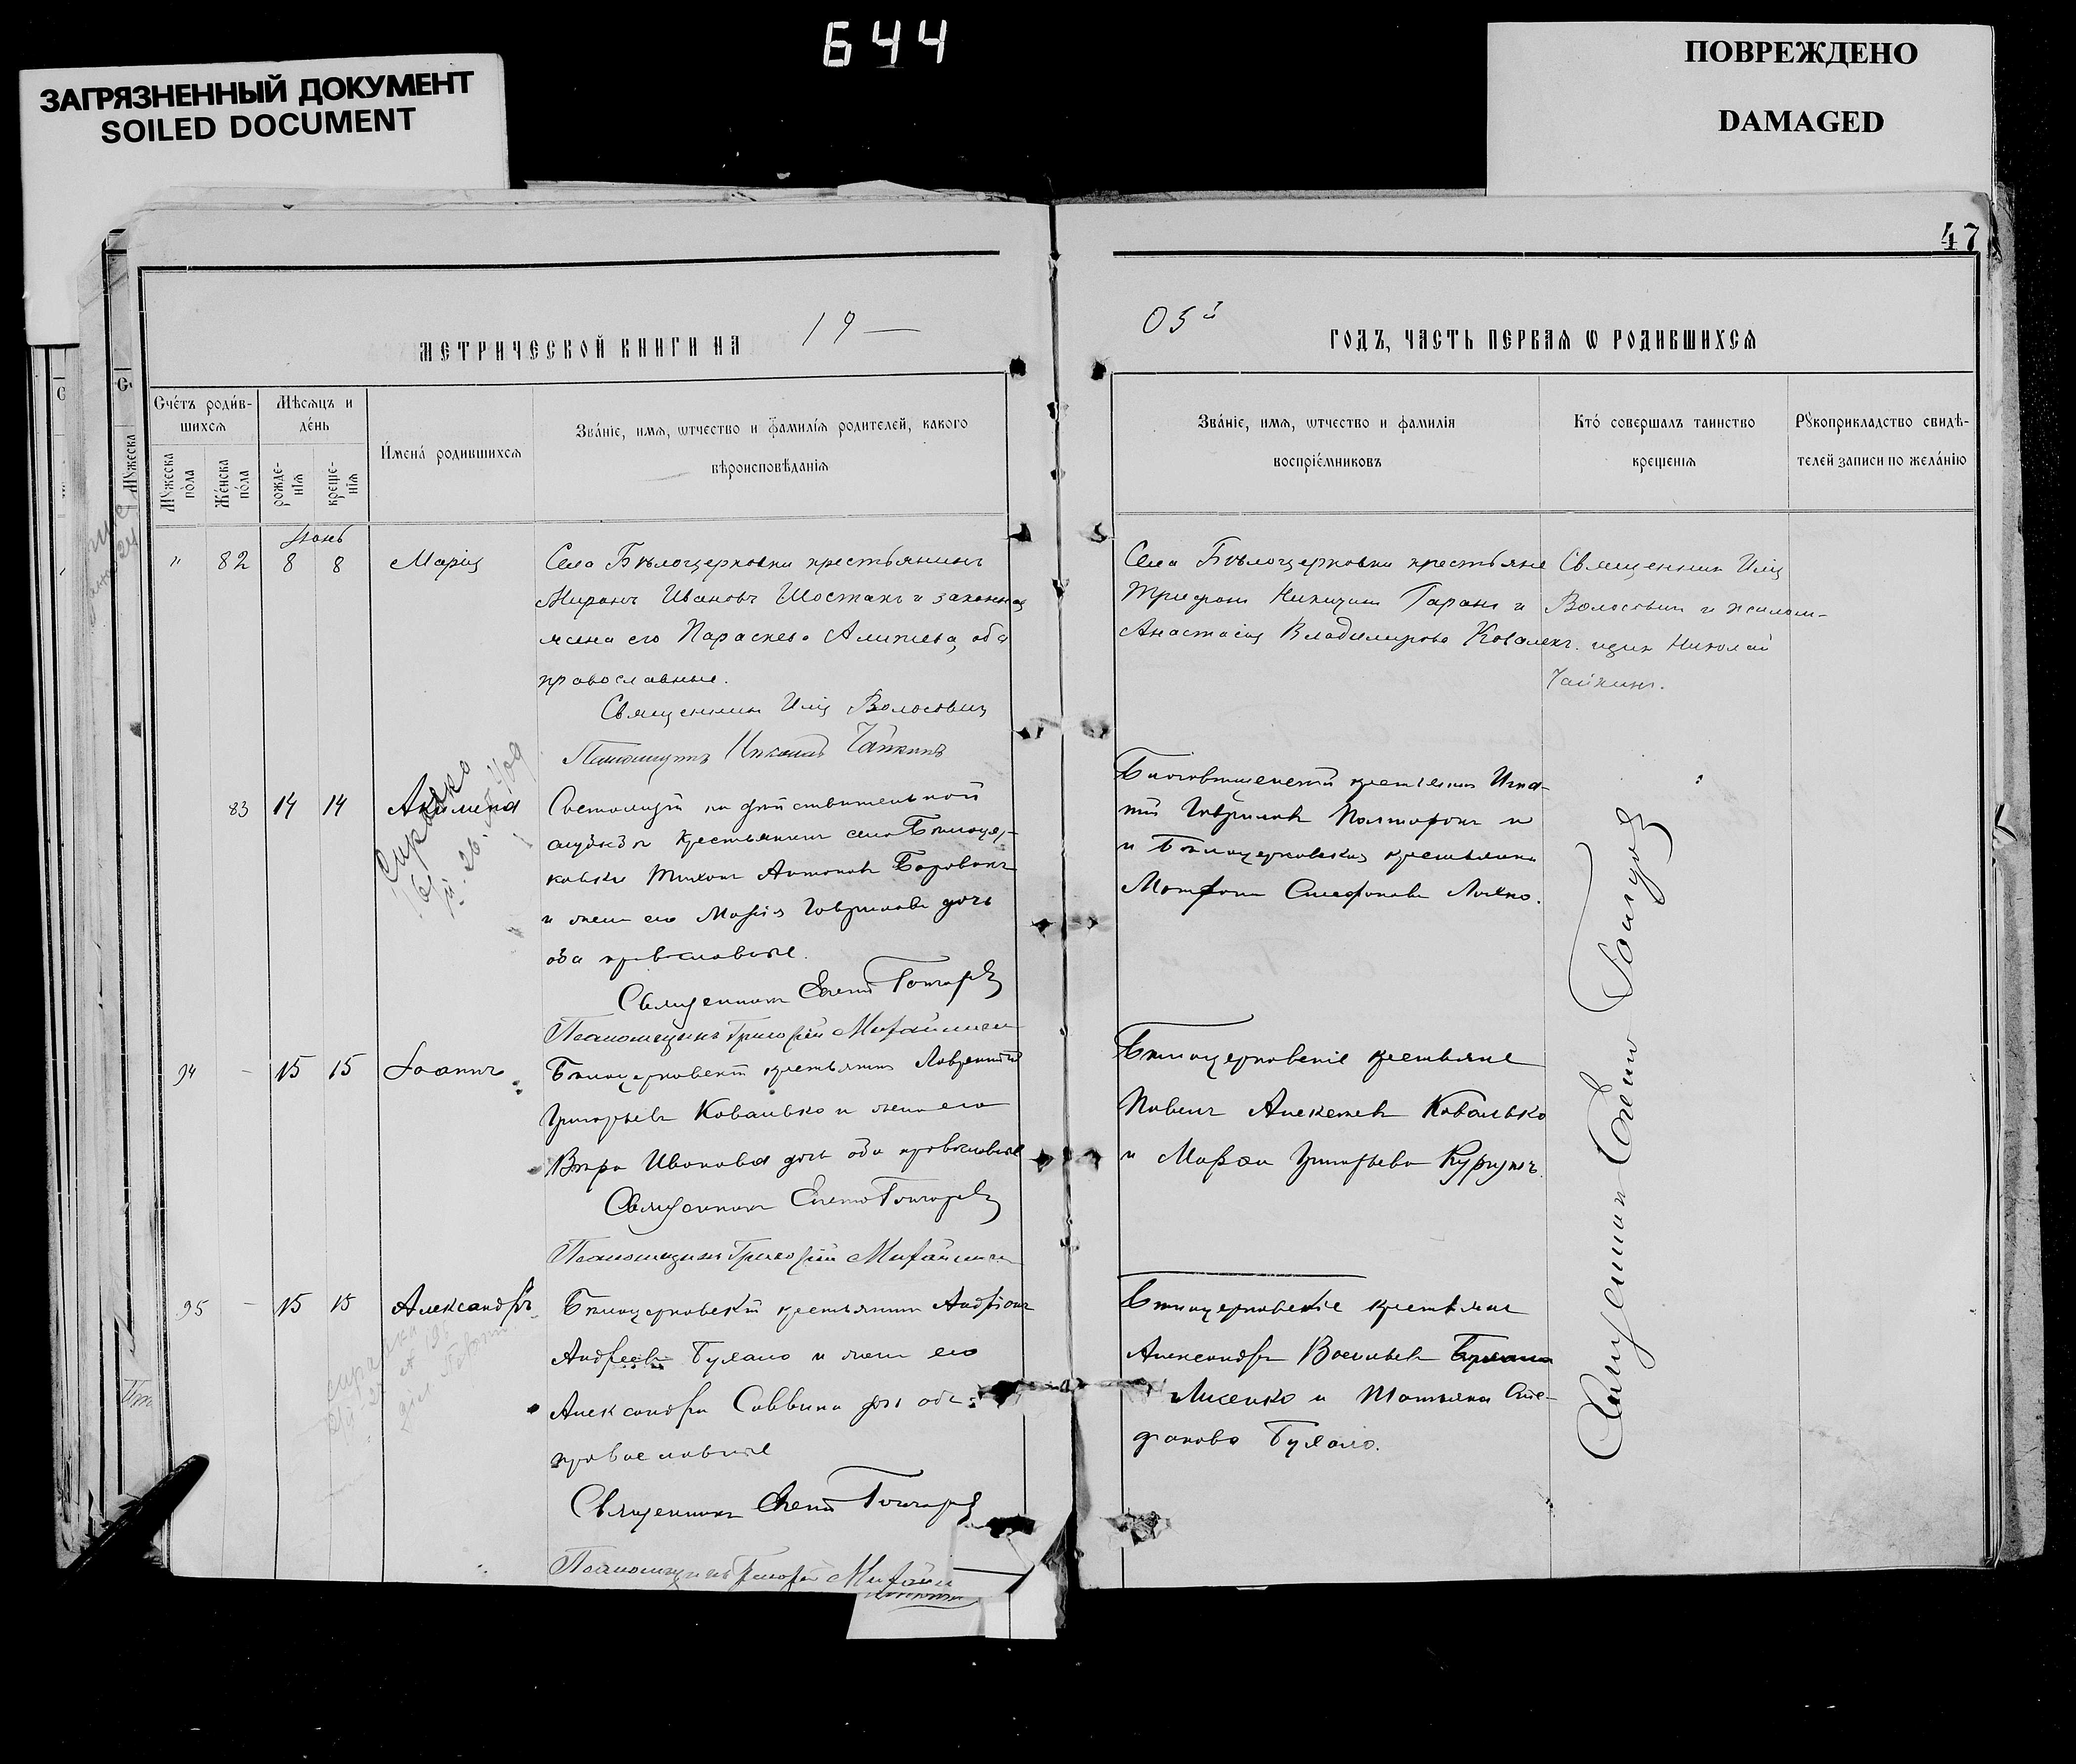 644
ЗАГРЯЗНЕННЫЙ ДОКУМЕНТ
SOILED DOCUMENT
ПОВРЕЖДЕНО
DAMAGED
47
МЕТРИЧЕСКОЙ КНИГИ НА 19—
05й ГОДЪ, ЧАСТЬ ПЕРВАЯ Ѡ РОДИВШИХСЯ
Счётъ роди́в-
шихся
Мѣсяцъ и
де́нь
Мꙋжеска
по́ла
Же́нска
по́ла
рожде-
нія
креще-
нія
И́мена́ родившихся
Зва́ніе, имя, ѡтчество и фами́лія родителей, какого
вѣроисповѣ́данія
Зва́ніе, имя, ѡтчество и фамилія
воспріе́мниковъ
Кто́ совершалъ таинство
крещенія
Рꙋкоприкладство свидѣ-
телей записи по жела́нію
Іюнь
" 82 8 8 Марія
Села Бѣлоцерковки крестьянинъ
Миронъ Ивановъ Шостакъ и законная
жена его Параскева Алипиева, оба
православные.
Священникъ Илія Волосовичъ
Псаломщикъ Николай Чайкинъ
Села Бѣлоцерковки крестьяне
Трифонъ Никитинъ Гаранъ и
Анастасія Владимирова Коваленк.
Священникъ Илія
Волосовичъ и псалом-
щикъ Николай
Чайкинъ.
83 14 14 Акилина
Состоящій на дѣйствительной
службѣ крестьянинъ села Бѣлоцер-
ковки Тихонъ Антоновъ Боровикъ
и жена его Марія Гаврилова дочь
оба православные.
Священникъ Гончаровъ
Псаломщикъ Григорій
Благовѣщенскій крестьянинъ Игна-
тій Гавриловъ и
и Бѣлоцерковская крестьянка
Стефанова
94 - 15 15 Іоаннъ
Бѣлоцерковскій крестьянинъ Лаврентій
Григорьевъ Ковалько и жена его
Вѣра Иванова дочь оба православные
Священникъ Гончаровъ
Псаломщикъ Григорій
Бѣлоцерковскіе крестьяне
Павелъ Алексеевъ Ковалько
и Марѳа Григорьева
95 - 15 15 Александръ
Бѣлоцерковскій крестьянинъ Андріанъ
Андреевъ Бухало и жена его
Александра Саввина дочь оба
православные
Священникъ Гончаровъ
Псаломщикъ Григорій
Бѣлоцерковскіе крестьяне
Александръ Васильевъ
Лисенко и Татьяна Сте-
фанова Бухало.
Священникъ Гончаровъ